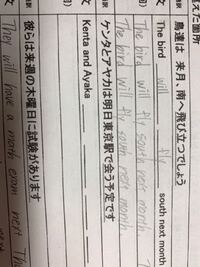 えた箇所
訳 鳥達は 来月、南へ飛び立つでしょう
文 The bird will fly south next month
The bird will fly south next month
The bird will fly south next month
訳 ケンタとアヤカは明日東京駅で会う予定です
文 Kenta and Ayaka
訳 彼らは来週の木曜日に試験があります
文 They will have a math exam next